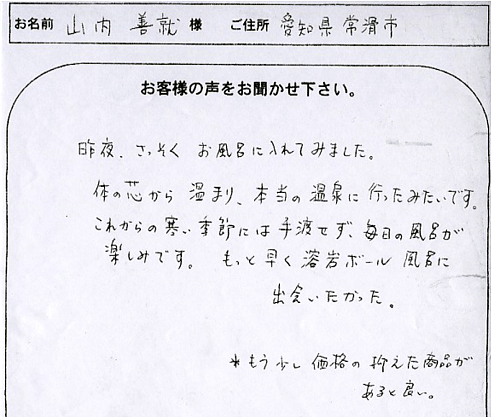 お名前 山内 善就 様 ご住所 愛知県常滑市
お客様の声をお聞かせ下さい。
昨夜、さっそく お風呂に入れてみました。
体の芯から 温まり、本当の温泉に行ったみたいです。
これからの寒い季節には手渡せず、毎日の風呂が
楽しみです。 もっと早く溶岩ボール風呂に
出会いたかった。
*もう少し価格の抑えた商品が
あると良い。